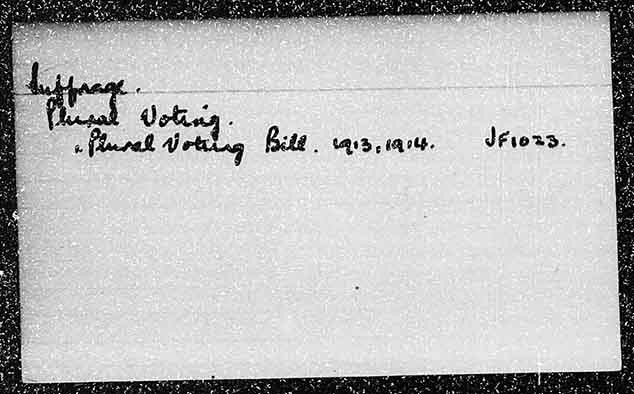 Suffrage.
Plural Voting.
Plural Voting Bill. 1913, 1914. JF1023.